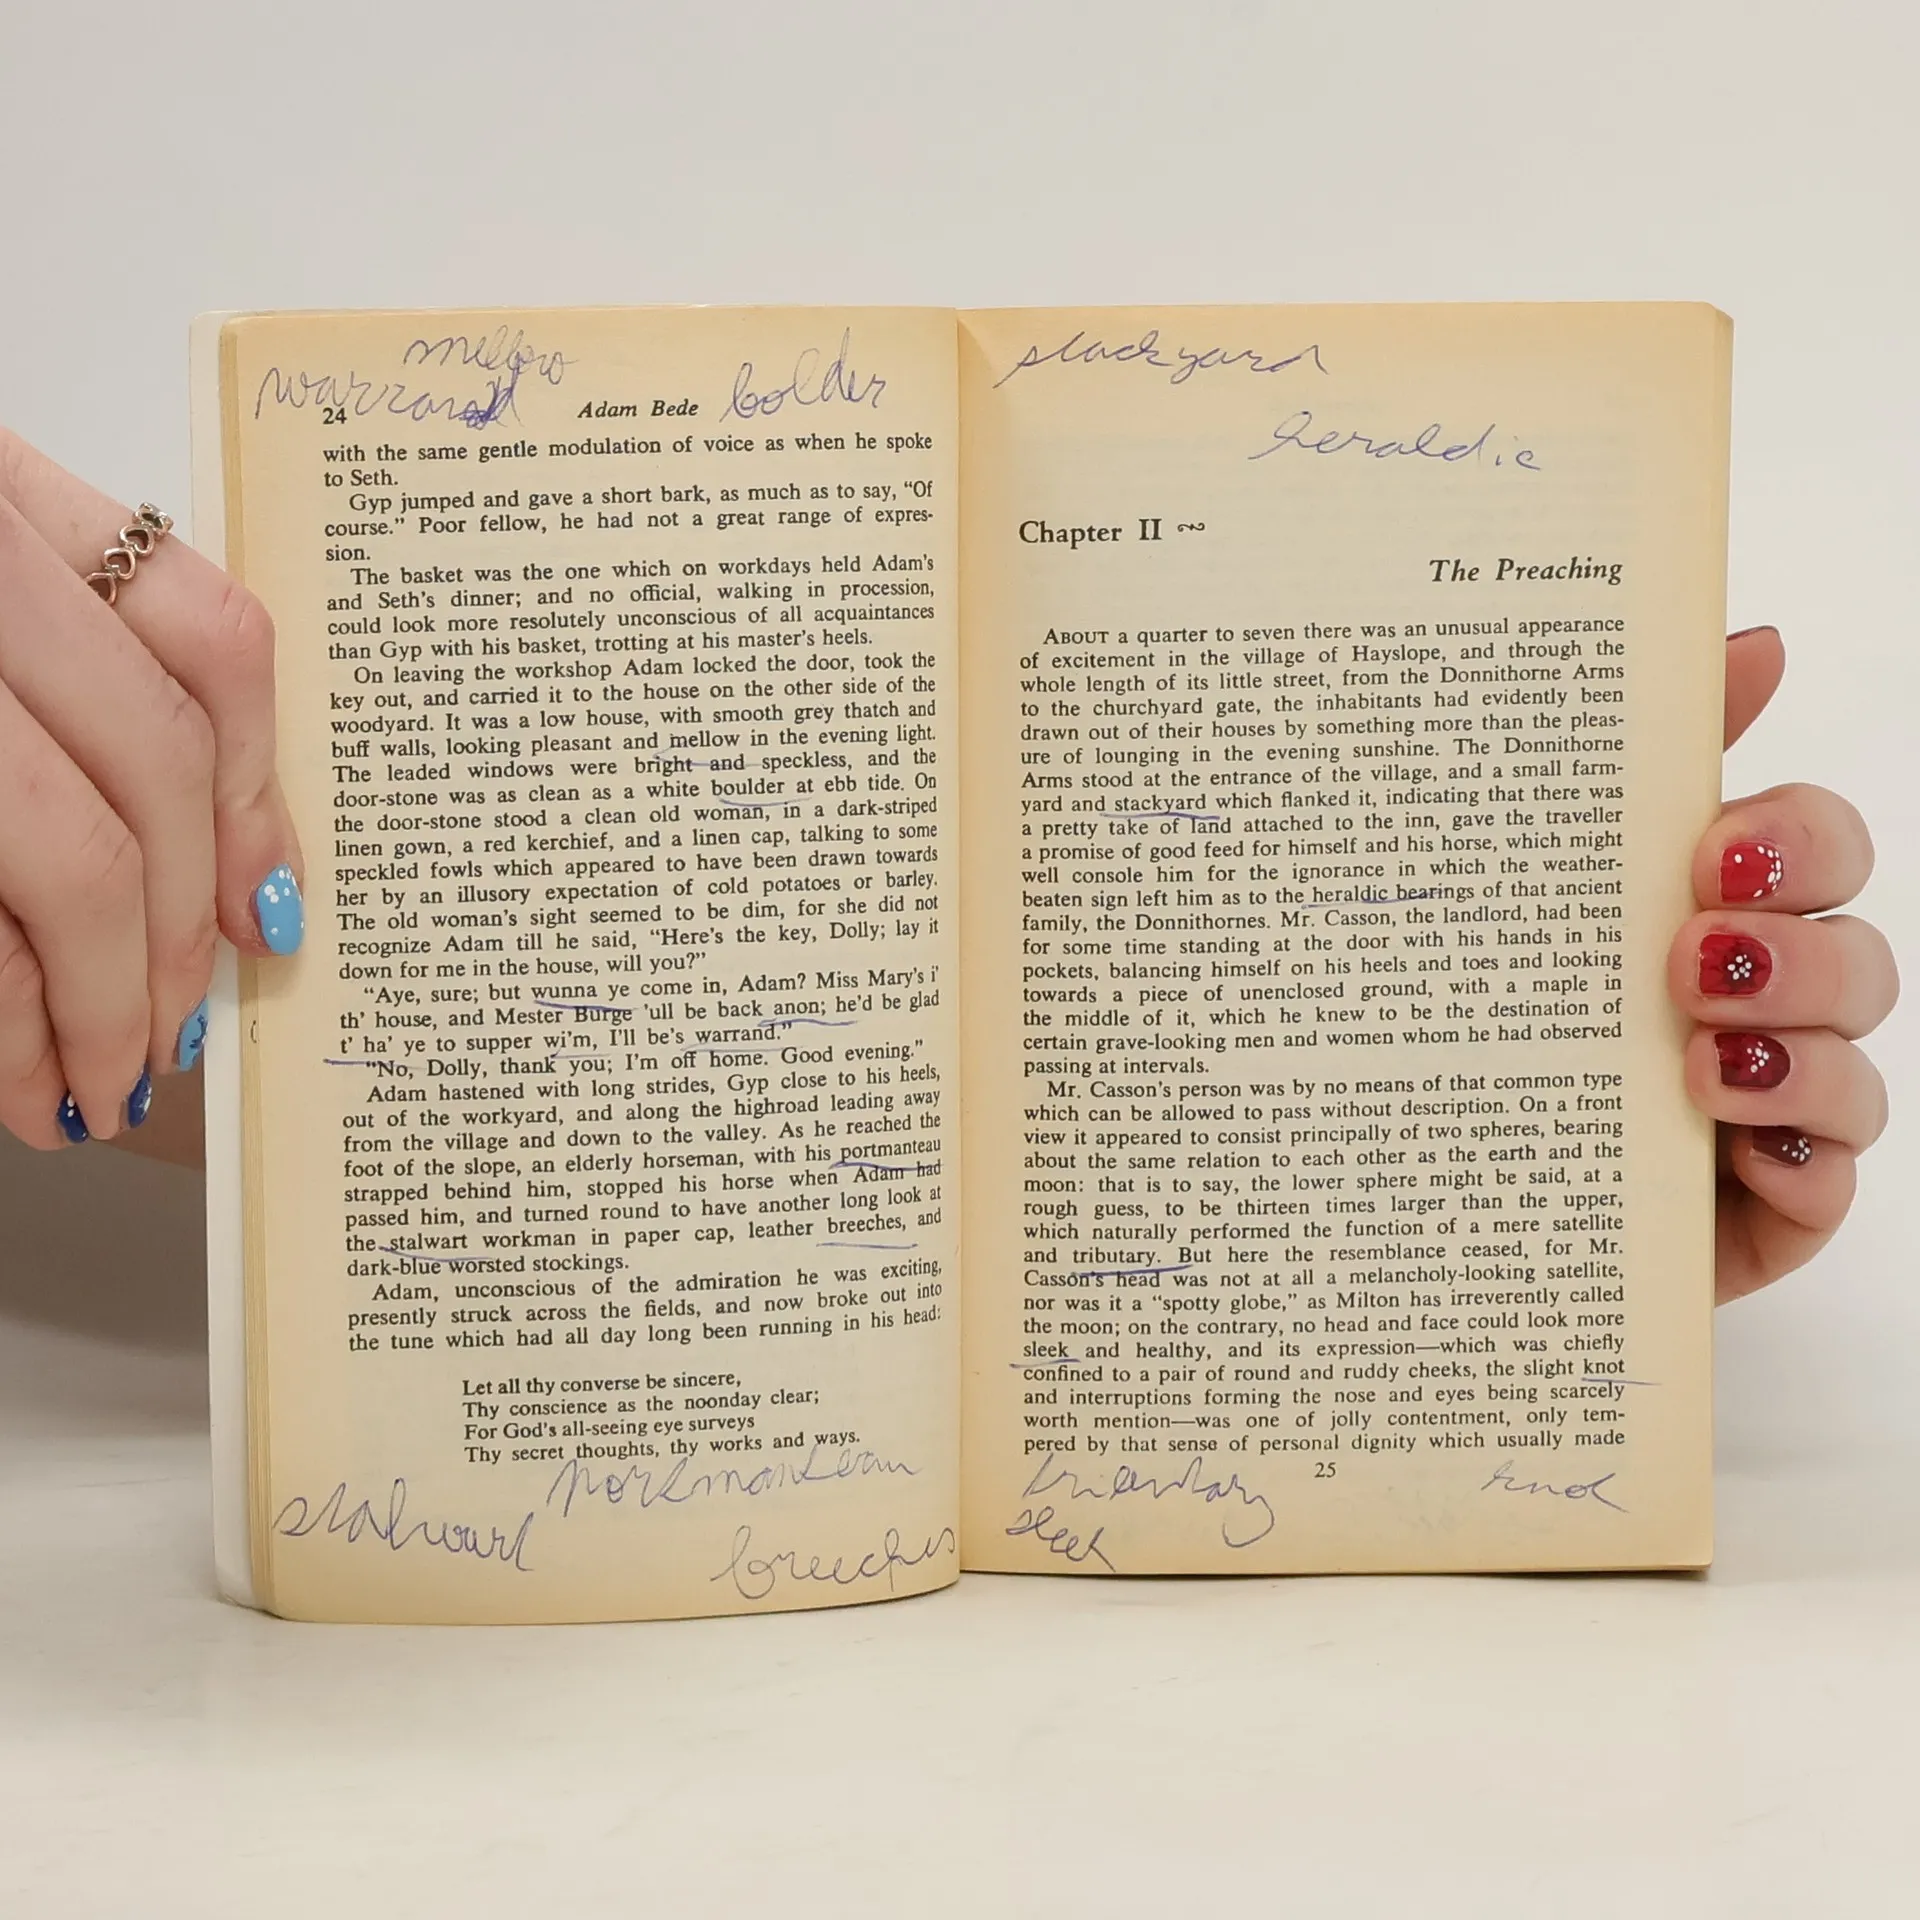 mellow
warrand
bolder
24 Adam Bede
with the same gentle modulation of voice as when he spoke
to Seth.
Gyp jumped and gave a short bark, as much as to say, “Of
course.” Poor fellow, he had not a great range of expres-
sion.
The basket was the one which on workdays held Adam's
and Seth's dinner; and no official, walking in procession,
could look more resolutely unconscious of all acquaintances
than Gyp with his basket, trotting at his master's heels.
On leaving the workshop Adam locked the door, took the
key out, and carried it to the house on the other side of the
woodyard. It was a low house, with smooth grey thatch and
buff walls, looking pleasant and mellow in the evening light.
The leaded windows were bright and speckless, and the
door-stone was as clean as a white boulder at ebb tide. On
the door-stone stood a clean old woman, in a dark-striped
linen gown, a red kerchief, and a linen cap, talking to some
speckled fowls which appeared to have been drawn towards
her by an illusory expectation of cold potatoes or barley.
The old woman's sight seemed to be dim, for she did not
recognize Adam till he said, “Here's the key, Dolly; lay it
down for me in the house, will you?”
“Aye, sure; but wunna ye come in, Adam? Miss Mary's i'
th' house, and Mester Burge 'ull be back anon; he'd be glad
t' ha' ye to supper wi'm, I'll be's warrand.”
“No, Dolly, thank you; I'm off home. Good evening.”
Adam hastened with long strides, Gyp close to his heels,
out of the workyard, and along the highroad leading away
from the village and down to the valley. As he reached the
foot of the slope, an elderly horseman, with his portmanteau
strapped behind him, stopped his horse when Adam had
passed him, and turned round to have another long look at
the stalwart workman in paper cap, leather breeches, and
dark-blue worsted stockings.
Adam, unconscious of the admiration he was exciting,
presently struck across the fields, and now broke out into
the tune which had all day long been running in his head:
Let all thy converse be sincere,
Thy conscience as the noonday clear;
For God's all-seeing eye surveys
Thy secret thoughts, thy works and ways.
portmanteau
stalwart
breeches
stackyard
heraldic
Chapter II
The Preaching
ABOUT a quarter to seven there was an unusual appearance
of excitement in the village of Hayslope, and through the
whole length of its little street, from the Donnithorne Arms
to the churchyard gate, the inhabitants had evidently been
drawn out of their houses by something more than the pleas-
ure of lounging in the evening sunshine. The Donnithorne
Arms stood at the entrance of the village, and a small farm-
yard and stackyard which flanked it, indicating that there was
a pretty take of land attached to the inn, gave the traveller
a promise of good feed for himself and his horse, which might
well console him for the ignorance in which the weather-
beaten sign left him as to the heraldic bearings of that ancient
family, the Donnithornes. Mr. Casson, the landlord, had been
for some time standing at the door with his hands in his
pockets, balancing himself on his heels and toes and looking
towards a piece of unenclosed ground, with a maple in
the middle of it, which he knew to be the destination of
certain grave-looking men and women whom he had observed
passing at intervals.
Mr. Casson's person was by no means of that common type
which can be allowed to pass without description. On a front
view it appeared to consist principally of two spheres, bearing
about the same relation to each other as the earth and the
moon: that is to say, the lower sphere might be said, at a
rough guess, to be thirteen times larger than the upper,
which naturally performed the function of a mere satellite
and tributary. But here the resemblance ceased, for Mr.
Casson's head was not at all a melancholy-looking satellite,
nor was it a “spotty globe,” as Milton has irreverently called
the moon; on the contrary, no head and face could look more
sleek and healthy, and its expression—which was chiefly
confined to a pair of round and ruddy cheeks, the slight knot
and interruptions forming the nose and eyes being scarcely
worth mention—was one of jolly contentment, only tem-
pered by that sense of personal dignity which usually made
25
tributary
knot
sleek